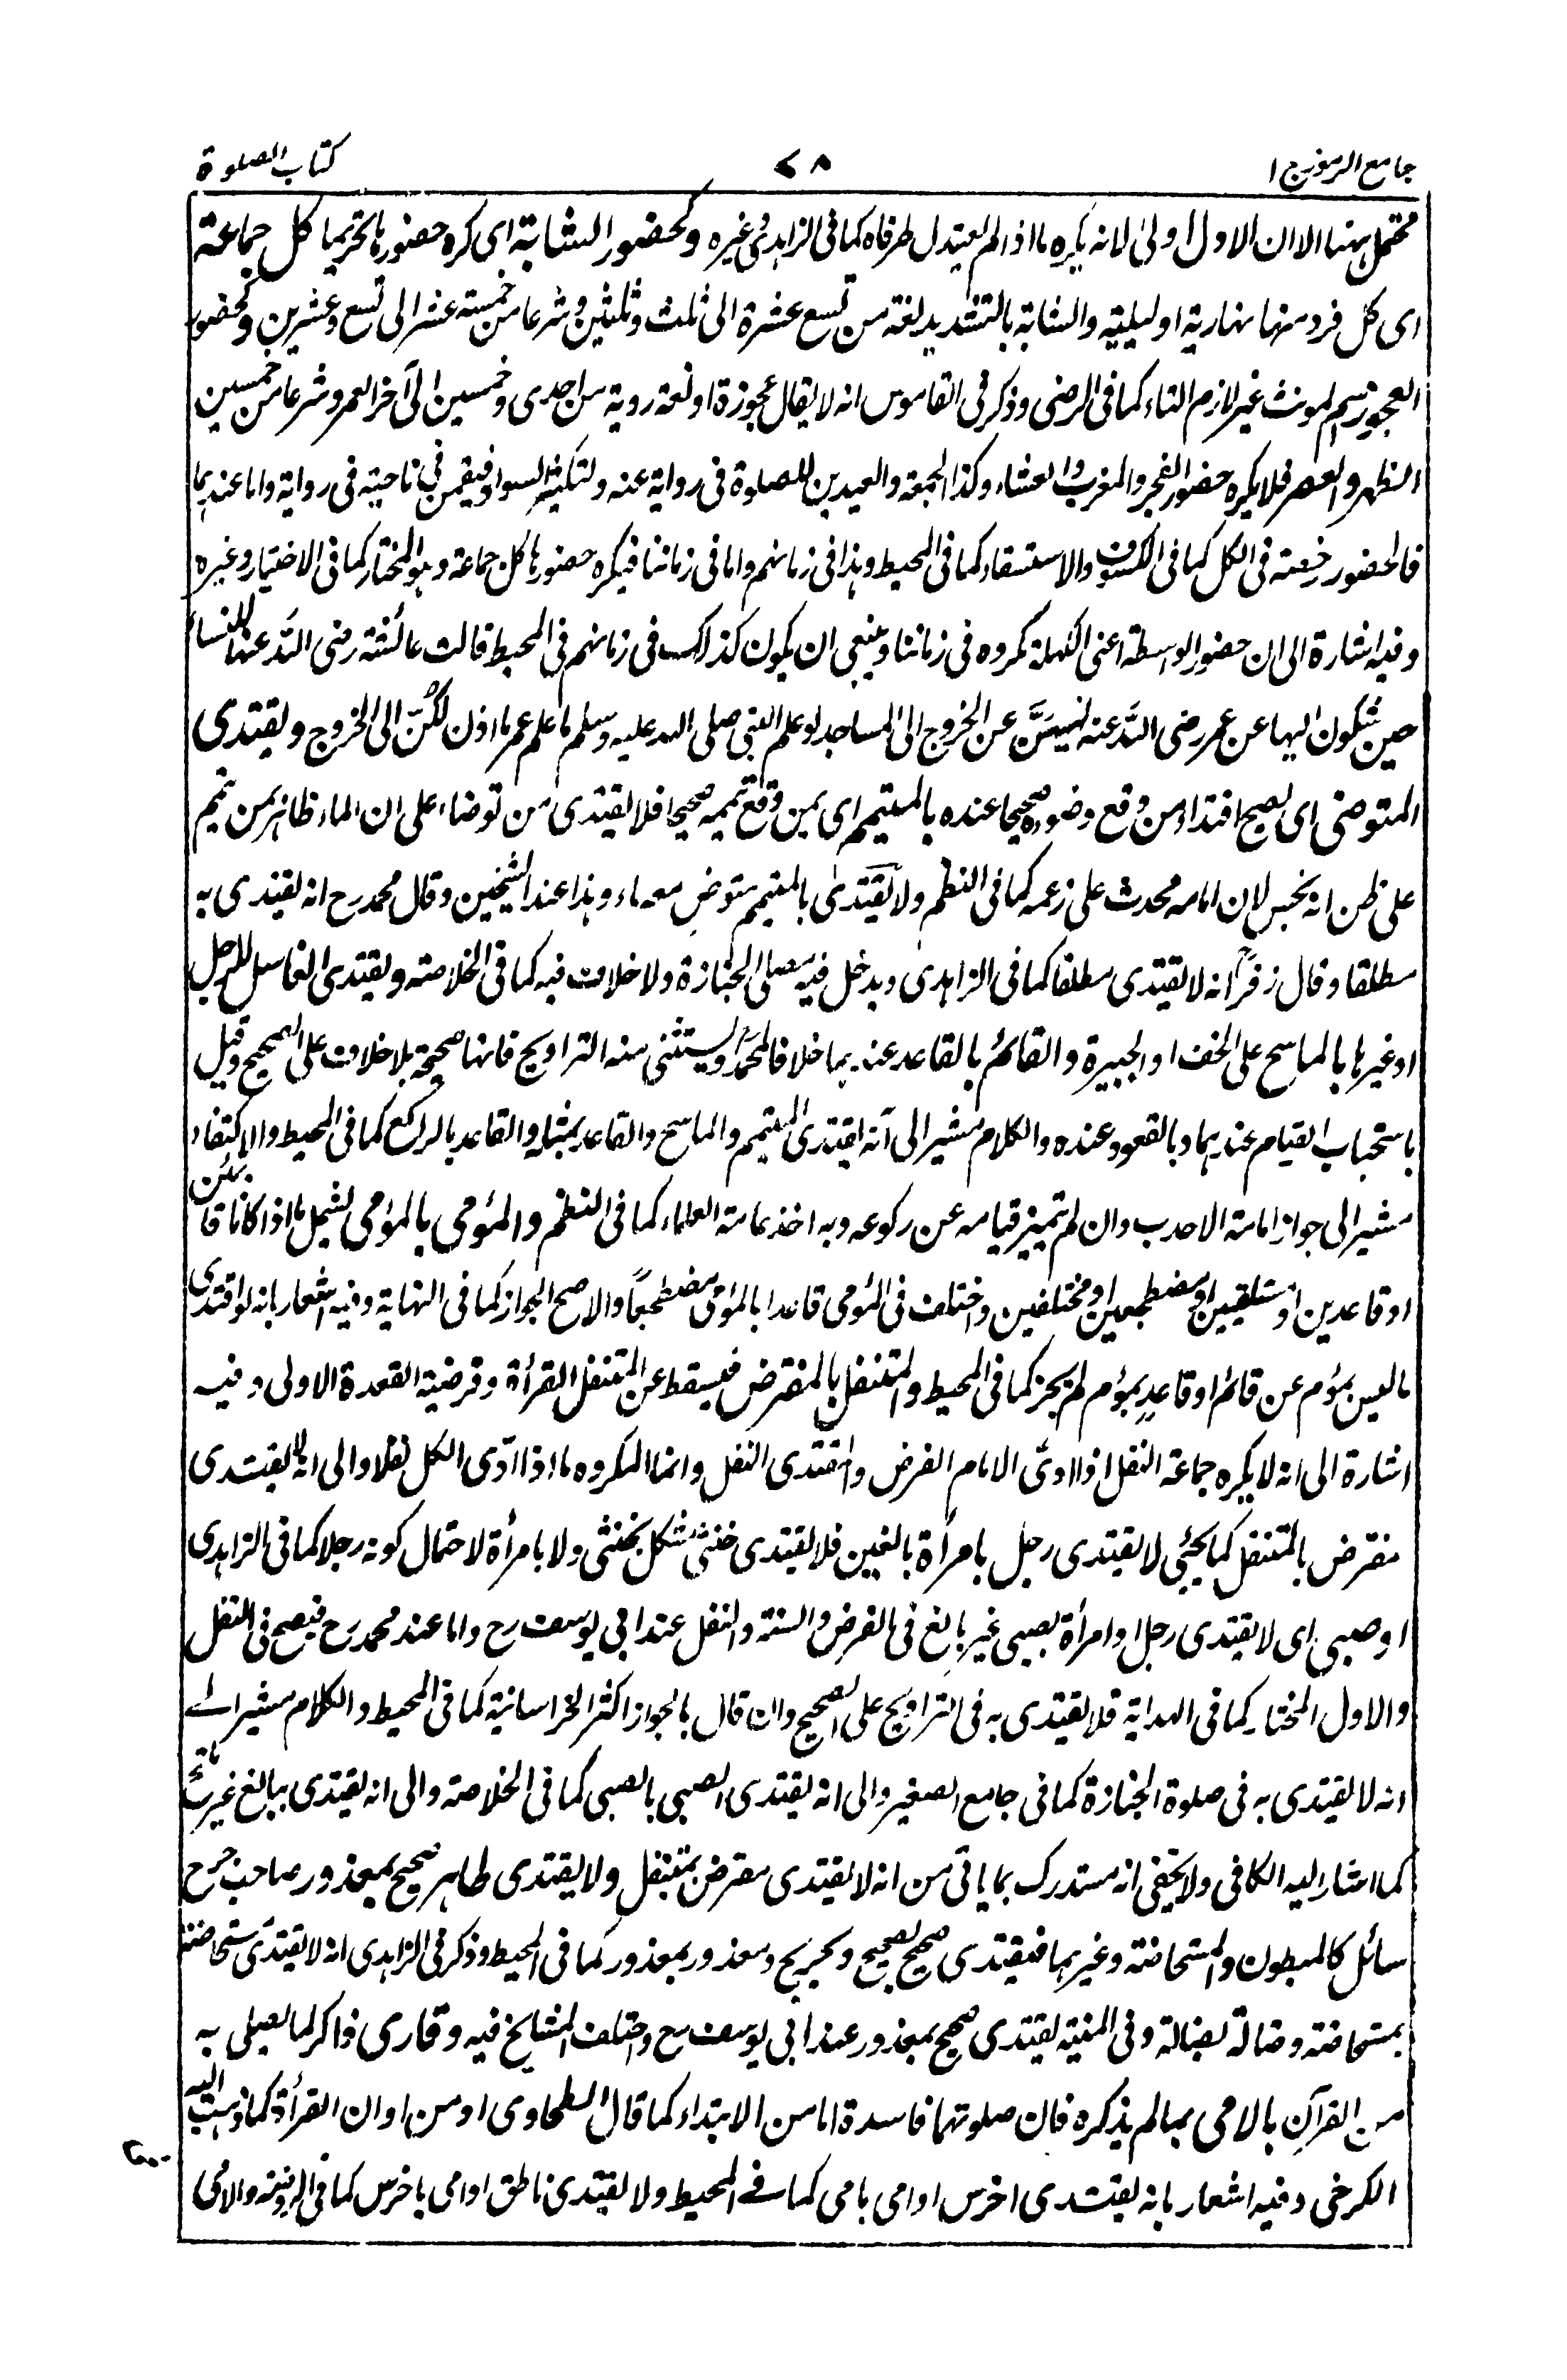 جامع الرموز ج ا
٧٨
كتاب الصلوة
محتمل ههنا الا ان الاول اولى لانه يكره ما اذا لم يعتدل طرفاه كما فى الزاهدى وغيره وكحضور الشابة اى كره حضورها تحريما كل جماعة
اى كل فرد منها نهارية او ليلية والشابة بالتشديد لغة من تسع عشرة الى ثلث وثلثين وشرعا من خمسة عشر الى تسع وعشرين وكحضور
العجوز اسم لمونث غير لازم التاء كما فى الرضى وذكر فى القاموس انه لا يقال عجوزة او لغة روية من احدى وخمسين الى آخر العمر وشرعا من خمسين
الظهر والعصر فلا يكره حضور الفجر والمغرب والعشاء وكذا الجمعة والعيدين للصلوة فى رواية عنه ولتكثير السواد فيقمن فى ناحيته فى رواية واما عندهما
فالحضور رخصة فى الكل كما فى الكسوف والاستسقاء كما فى المحيط وهذا فى زمانهم واما فى زماننا فيكره حضورها كل جماعة وهو المختار كما فى الاختيار وغيره
وفيه اشارة الى ان حضور الواسطة اعنى الكهلة مكروه فى زماننا وينبغى ان يكون كذلك فى زمانهم فى المحيط قالت عائشة رضى الله عنها للنساء
حين شكون اليها عن عمر رضى الله عنه لنهيهن عن الخروج الى المساجد لو علم النبى صلى الله عليه وسلم ما علم عمر ما اذن لكنّ الى الخروج ويقتدى
المتوضى اى يصح اقتداء من وقع وضوءه صحيحا عنده بالمتيمم اى بمن وقع تيممه صحيحا فلا يقتدى من توضاء على ان الماء طاهر بمن تيمم
على ظن انه نجس لان امامه محدث على زعمه كما فى النظم ولا يقتدى بالمتيمم متوض معه ماء وهذا عند الشيخين وقال محمد رح انه يقتدى به
مطلقا وقال زفر انه لا يقتدى مطلقا كما فى الزاهدى ويدخل فيه مصلى الجنازة ولا خلاف فيه كما فى الخلاصة ويقتدى الغاسل للرجل
او غيرها بالماسح على الخف او الجبيرة والقائم بالقاعد عندهما خلافا لمحمد ويستثنى منه التراويح فانها صحيحة بلا خلاف على الصحيح وقيل
باستحباب القيام عندهما وبالقعود عنده والكلام مشير الى انه اقتدى المتيمم والماسح والقاعد بمثله والقاعد بالراكع كما فى المحيط والاكتفاء
مشير الى جواز امامة الاحدب وان لم تميز قيامه عن ركوعه وبه اخذ عامة العلماء كما فى النظم والمؤمى بالمؤمى يشمل ما اذا كانا قائمين
او قاعدين او مستلقيين او مضطجعين او مختلفين واختلف فى المؤمى قاعدا بالمؤمى مضطجعاً والاصح الجواز كما فى النهاية وفيه اشعار بانه لو اقتدى
ما ليس بمؤم عن قائم او قاعد بمؤم لم يجز كما فى المحيط والمتنفل بالمفترض فيسقط عن المتنفل القرأة وفرضية القعدة الاولى وفيه
اشارة الى انه لا يكره جماعة النفل اذا ادى الامام الفرض والمقتدى النفل وانما المكروه ما اذا ادّى الكل نفلا والى انه لا يقتدى
مفترض بالمتنفل كما يجئى لا يقتدى رجل بامرأة بالغين فلا يقتدى خنثى مشكل بخنثى ولا بامرأة لاحتمال كونه رجلا كما فى الزاهدى
او صبى اى لا يقتدى رجل او امرأة بصبى غير بالغ فى الفرض والسنة والنفل عند ابى يوسف رح واما عند محمد رح فيصح فى النفل
والاول المختار كما فى الهداية فلا يقتدى به فى التراويح على الصحيح وان قال بالجواز اكثر الخراسانية كما فى المحيط والكلام مشير الى
انه لا يقتدى به فى صلوة الجنازة كما فى جامع الصغير والى انه يقتدى الصبى بالصبى كما فى الخلاصة والى انه يقتدى ببالغ غير
كما اشار اليه الكافى ولا يخفى انه مستدرك بما ياتى من انه لا يقتدى مفترض بمتنفل ولا يقتدى طاهر صحيح بمعذور صاحب جرح
سائل كالمبطون والمستحاضة وغيرهما فيقتدى صحيح بصحيح وجريح ومعذور بمعذور كما فى المحيط وذكر فى الزاهدى انه لا يقتدى مستحاضة
بمستحاضة وضالة بضالة وفى المنية يقتدى صحيح بمعذور عند ابى يوسف رح واختلف المشايخ فيه وقارى ذاكر لما يصلى به
من القرآن بالامى بما لم يذكره فان صلوتهما فاسدة اما من الابتداء كما قال الطحاوى او من اوان القرأة كما ذهب اليه
الكرخى وفيه اشعار بانه يقتدى اخرس او امى بامى كما فى المحيط ولا يقتدى ناطق او امى باخرس كما فى الروضة والامى